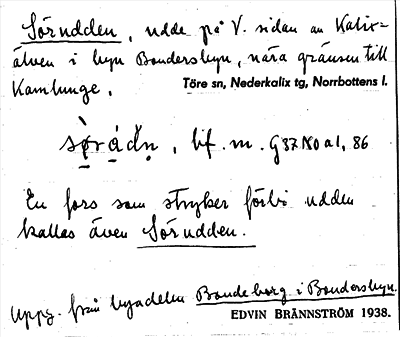 Sörudden, udde på V. sidan av Kalix-
älven i byn Bondersbyn, nära gränsen till
Kamlunge. Töre sn, Nederkalix tg, Norrbottens l.
bf. m. 86
En fors som stryker förbi udden
kallas även Sörudden.
Uppg. från byadelen Bondeborg i Bondersbyn.
EDVIN BRÄNNSTRÖM 1938.